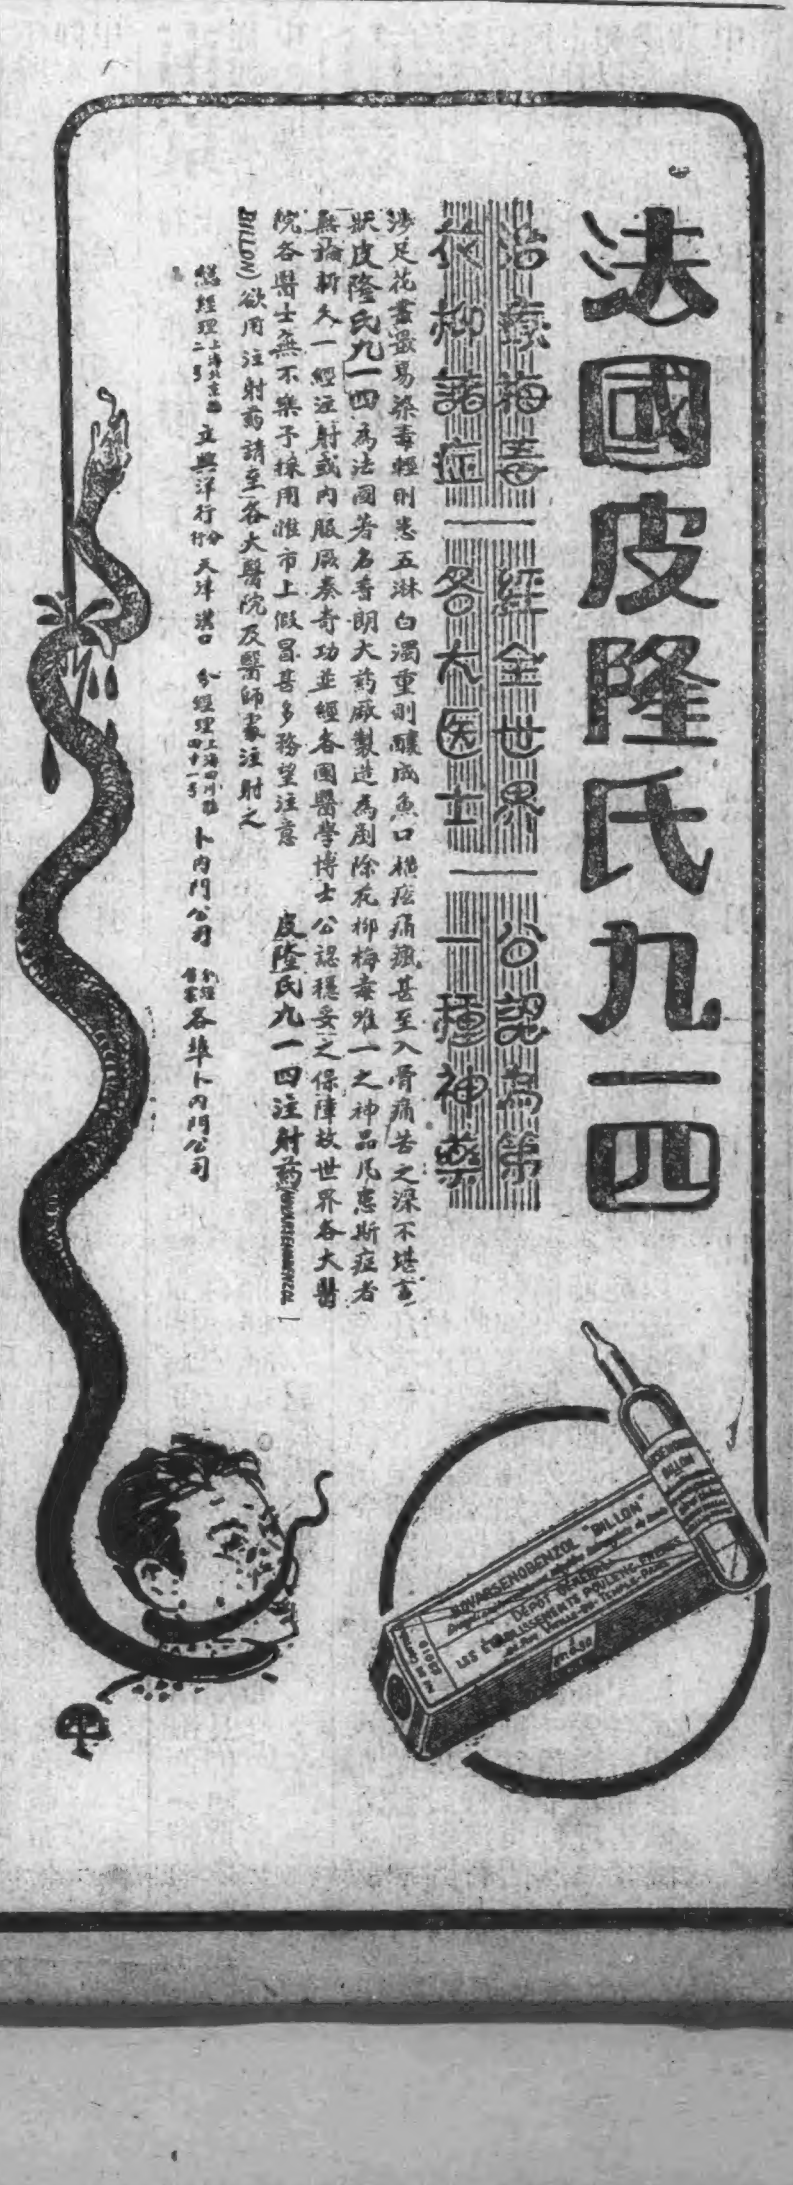 法國皮隆氏九一四
治療梅毒 經全世界 公認為第
花柳諸症 各大医士 一種神藥
涉足花叢最易染毒輕則患五淋白濁重則釀成魚口橫痃痛瘋甚至入骨痛苦之深不堪言
狀皮隆氏九一四為法國著名香朗大葯廠製造為剷除花柳梅毒唯一之神品凡患斯症者
無論新久一經注射或內服厥奏奇功並經各國醫學博士公認穩妥之保障故世界各大醫
院各醫士無不樂予採用惟市上假冒甚多務望注意 皮隆氏九一四注射葯(NOVARSENOBENZOL
BILLON)欲用注射葯請至各大醫院及醫師處注射之
總經理 上海北京路二號 立興洋行 分行 天津 漢口 分經理 上海四川路四十一號 卜內門公司 各埠卜內門公司
NOVARSENOBENZOL "BILLON"
DEPOT GENERAL
LES ÉTABLISSEMENTS POULENC FRÈRES
BILLON